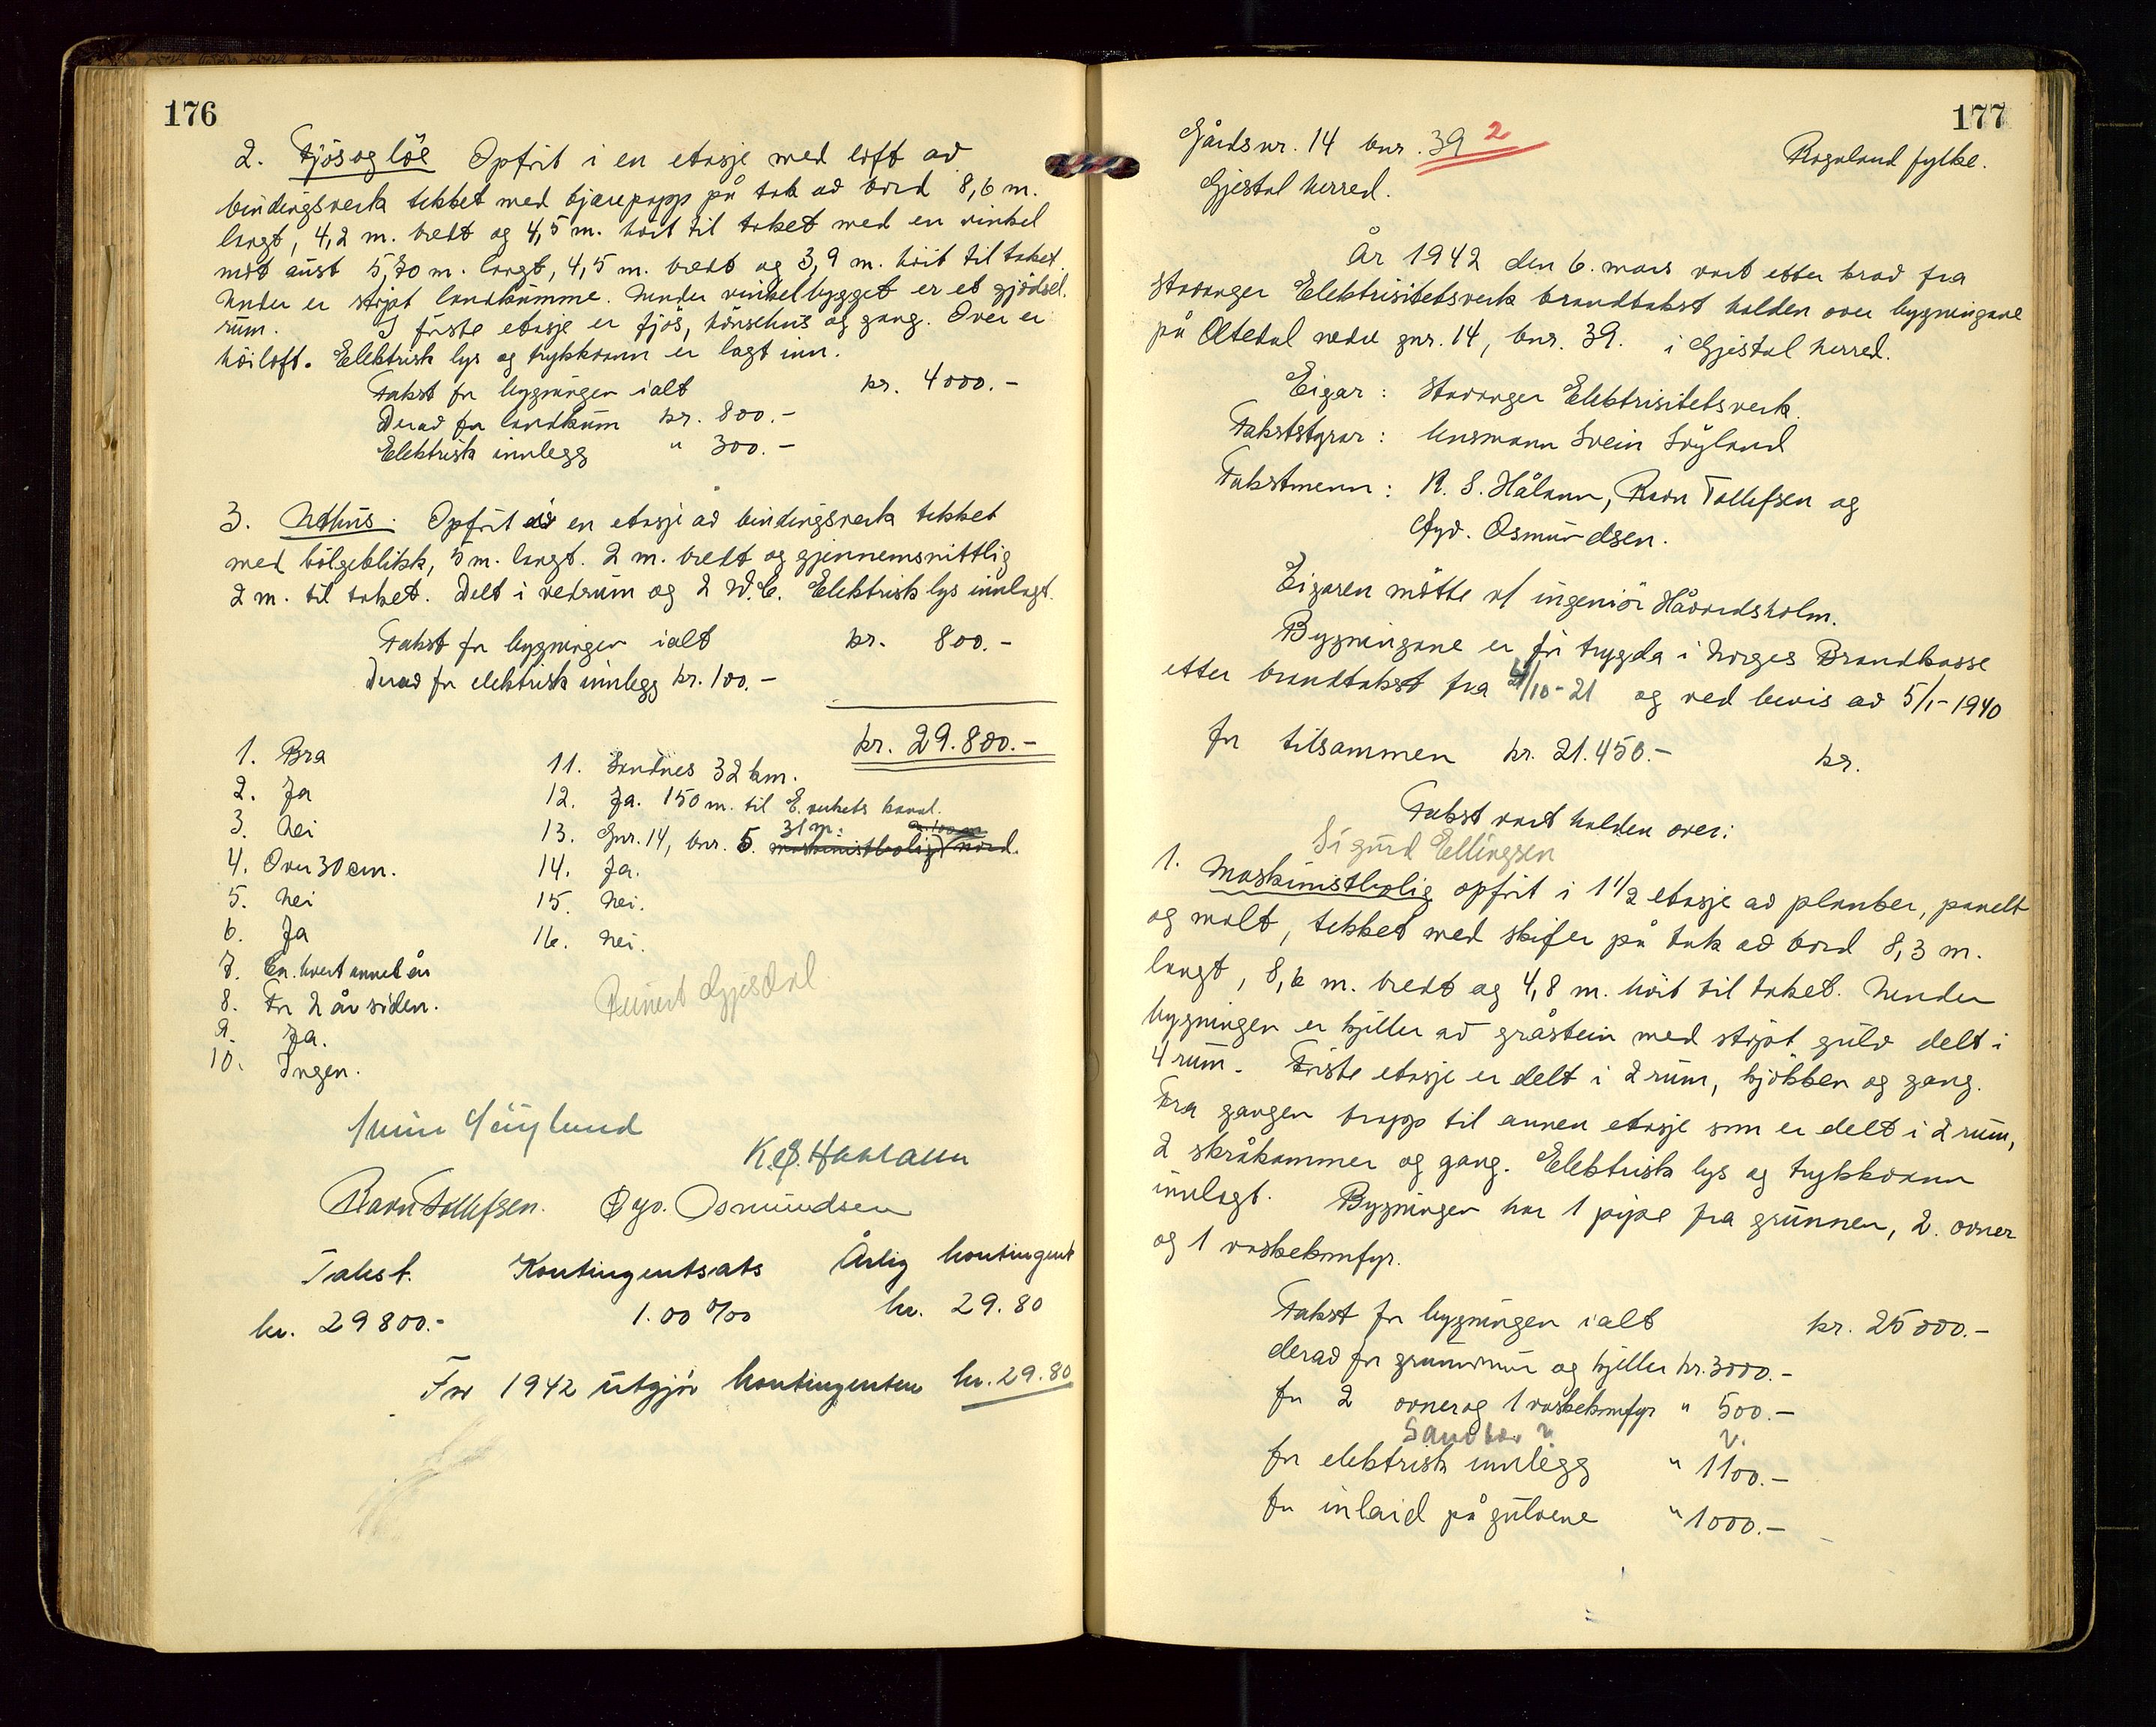 176
2. Fjös og löe Opfört i en etasje med loft av
bindingsverk tekket med tjærepapp på tak av bord 8,6 m.
langt, 4,2 m. bredt og 4,5 m. höit til taket med en vinkel
mot aust 5,70 m. langt, 4,5 m. bredt og 3,9 m. höit til taket.
Under er stöpt landkumme. Under vinkelbygget er et gjödsel-
rum. I förste etasje er fjös, hönsehus og gang. Over er
höiloft. Elektrisk lys og trykkvann er lagt inn.
Takst for bygningen ialt kr. 4000.-
Derav for landkum kr. 800.-
Elektrisk innlegg " 300.-
3. Uthus: Opfört i en etasje av bindingsverk tekket
med bölgeblikk, 5 m. langt. 2 m. bredt og gjennemsnittlig
2 m. til taket. Delt i vedrum og 2 W.C. Elektrisk lys innlagt.
Takst for bygningen ialt kr. 800.-
Derav for elektrisk innlegg kr. 100.-
kr. 29.800.-
1. Bra
2. Ja
3. Nei
4. Over 30 cm.
5. Nei
6. Ja
7. En. hvert annet år
8. For 2 år siden.
9. Ja.
10. Ingen.
11. Sandnes 32 km.
12. Ja. 150 m. til E. verkets kanal.
31 m.
13. Gnr. 14, bnr. 5. maskinistbolig nord.
14. Ja.
15. Nei.
16. Nei.
Reinert Gjesdal
Svein Söyland
K. S. Haaland
Ravn Tollefsen. Gyd. Osmundsen
Takst. Kontingentsats Årlig kontingent
kr. 29800.- 1.00 ‰ kr. 29.80
For 1942 utgjör kontingenten kr. 29.80
177
Gårdsnr. 14 bnr. 39 2
Rogaland fylke.
Gjestal herred.
År 1942 den 6. mars vart etter krav fra
Stavanger Elektrisitetsverk brandtakst halden over bygningane
på Oltedal nedre gnr. 14, bnr. 39. i Gjestal herred.
Eigar: Stavanger Elektrisitetsverk.
Takststyrar: Lensmann Svein Söyland
Takstmenn: K. S. Håland, Ravn Tollefsen og
Gyd. Osmundsen.
Eigaren mötte v/ ingeniör Håvardsholm.
Bygningane er för trygda i Norges Brandkasse
etter brandtakst fra 21/10-21 og ved bevis av 5/1-1940
for tilsammen kr. 21.450.- kr.
Takst vart halden over:
Sigurd Ellingsen
1. Maskinistbolig opfört i 1 1/2 etasje av planker, panelt
og malt, tekket med skifer på tak av bord 8,3 m.
langt, 8,6 m. bredt og 4,8 m. höit til taket. Under
bygningen er kjeller av gråstein med stöpt gulv delt i
4 rum. Förste etasje er delt i 2 rum, kjökken og gang.
Fra gangen trapp til annen etasje som er delt i 2 rum,
2 skråkammer og gang. Elektrisk lys og trykkvann
innlagt. Bygningen har 1 pipe fra grunnen, 2 ovner
og 1 vaskekomfyr.
Takst for bygningen ialt kr. 25000.-
derav for grunnmur og kjeller kr. 3000.-
for 2 ovner og 1 vaskekomfyr " 500.-
for elektrisk innlegg " 1100.-
for inlaid på gulvene " 1000.-